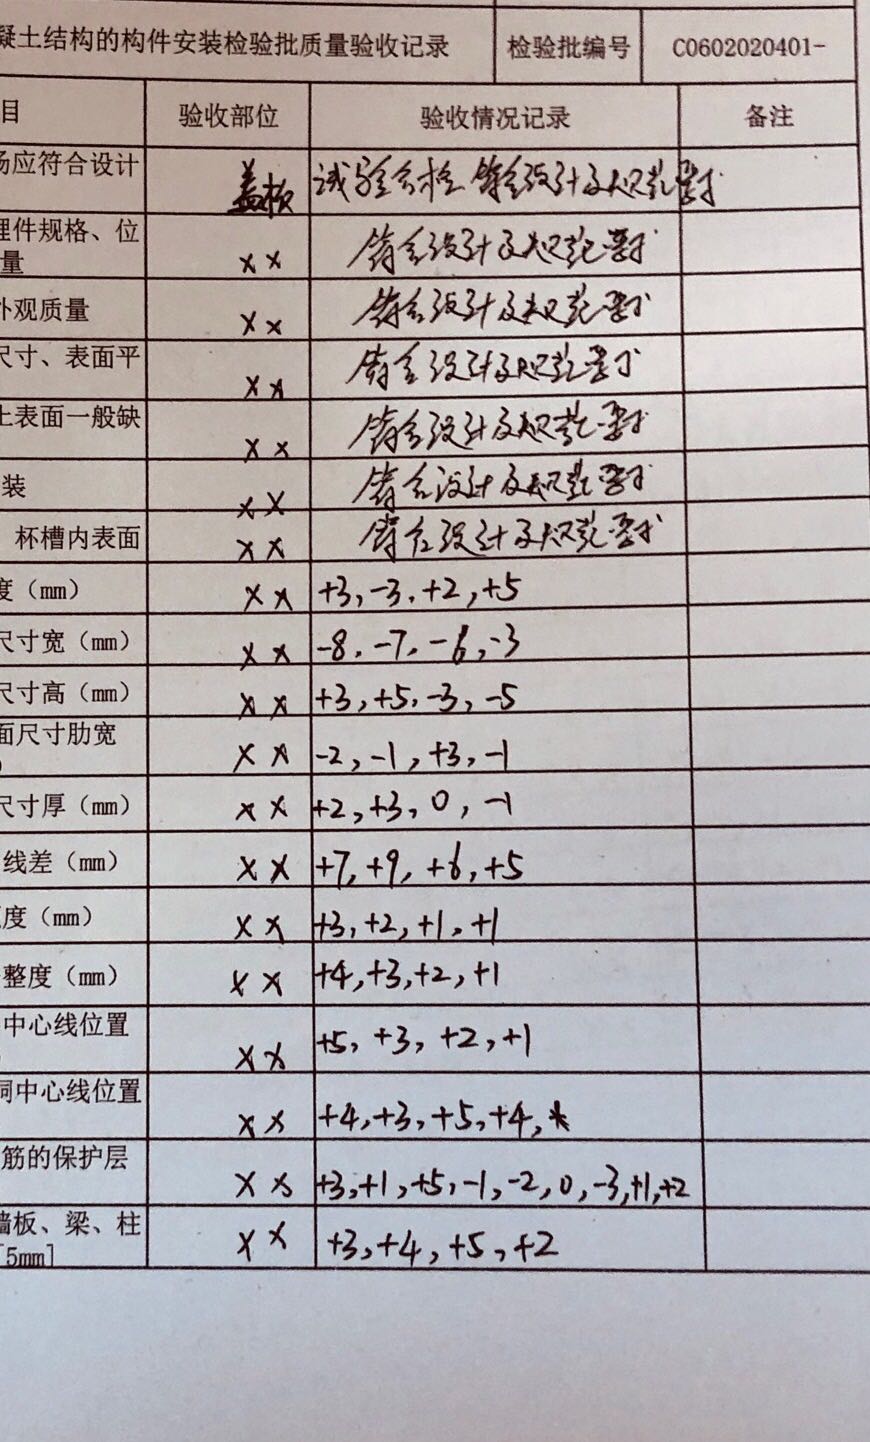 凝土结构的构件安装检验批质量验收记录 检验批编号 C0602020401-
目 验收部位 验收情况记录 备注
场应符合设计 盖板 试验合格、符合设计及规范要求
埋件规格、位
量 ×× 符合设计及规范要求
外观质量 ×× 符合设计及规范要求
尺寸、表面平 ×× 符合设计及规范要求
土表面一般缺 ×× 符合设计及规范要求
装 ×× 符合设计及规范要求
杯槽内表面 ×× 符合设计及规范要求
度（mm） ×× +3,-3,+2,+5
尺寸宽（mm） ×× -8,-7,-6,-3
尺寸高（mm） ×× +3,+5,-3,-5
面尺寸肋宽
） ×× -2,-1,+3,-1
尺寸厚（mm） ×× +2,+3,0,-1
线差（mm） ×× +7,+9,+6,+5
度（mm） ×× +3,+2,+1,+1
整度（mm） ×× +4,+3,+2,+1
中心线位置
） ×× +5,+3,+2,+1
洞中心线位置 ×× +4,+3,+5,+4,
筋的保护层 ×× +3,+1,+5,-1,-2,0,-3,+1,+2
墙板、梁、柱
[5mm] ×× +3,+4,+5,+2